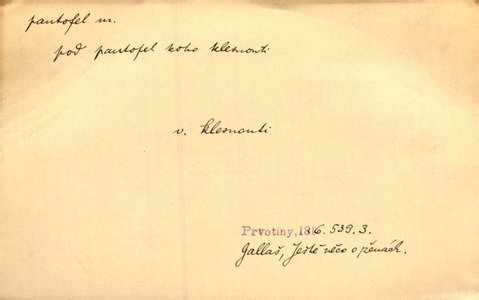 pantofel m.
pod pantofel koho klesnouti
v. klesnouti
Prvotiny, 1816. 539. 3.
Gallaš, Ještě něco o ženách.